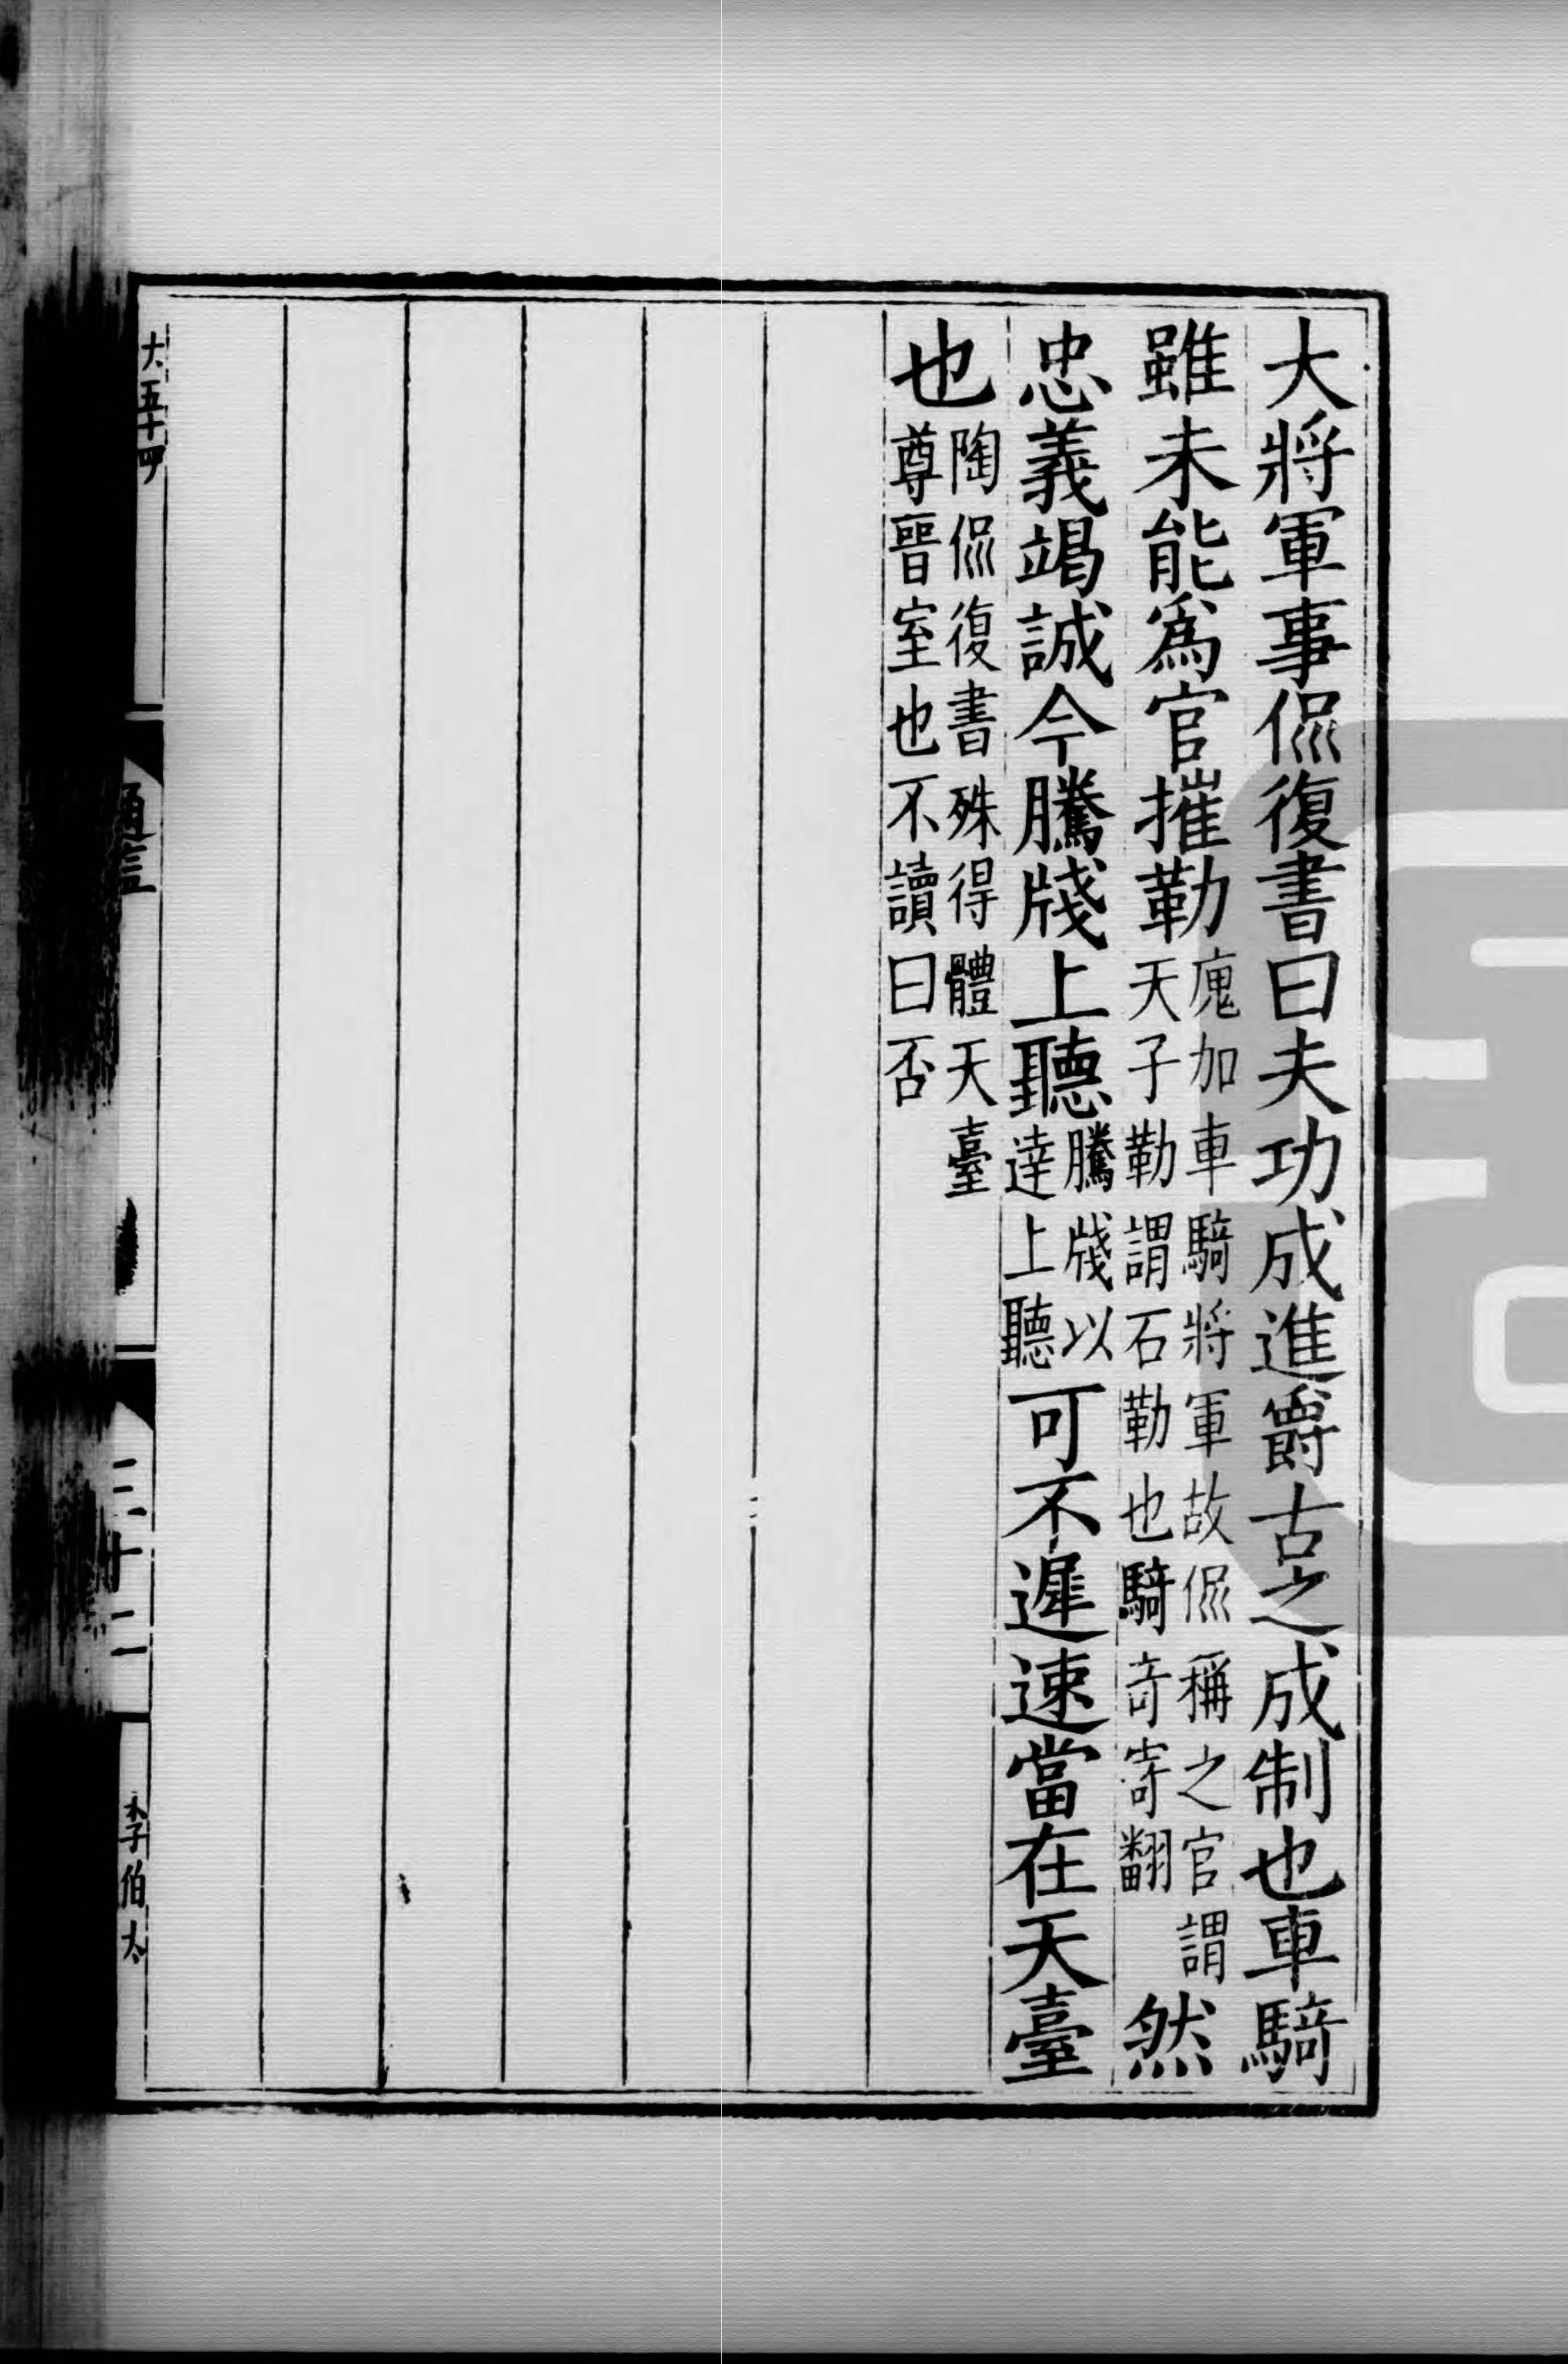 大將軍事侃復書曰夫功成進爵古之成制也車騎
雖未能爲官摧勒
廆加車騎將軍故侃稱之官謂
天子勒謂石勒也騎奇寄翻
然
忠義竭誠今騰牋上聽
騰牋以
達上聽
可不遲速當在天臺
也
陶侃復書殊得體天臺
尊晉室也不讀曰否
大五十四
三十二
李伯大